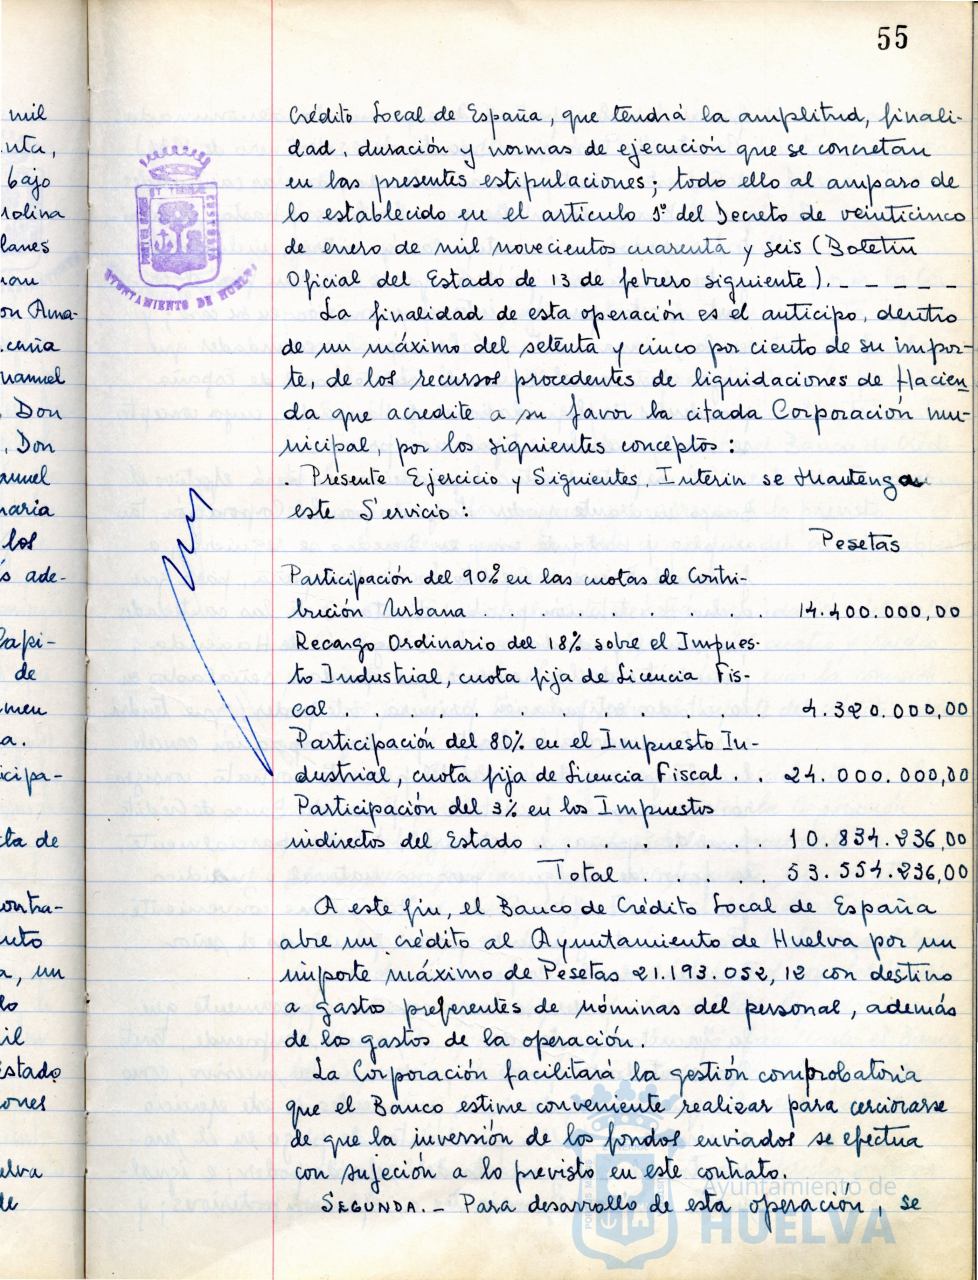 55
mil
nta,
bajo
rolina
lanes
on Ama-
anuel
Don
Don
anuel
naria
los
s ade-
Capi-
de
men
a.
icipa-
ta de
ontra-
nto
a, un
lo
il
Estado
ones
elva
de
AYUNTAMIENTO DE HUELVA
Crédito Local de España, que tendrá la amplitud, finali-
dad, duración y normas de ejecución que se concretan
en las presentes estipulaciones; todo ello al amparo de
lo establecido en el artículo 1º del Decreto de veinticinco
de enero de mil novecientos cuarenta y seis (Boletín
Oficial del Estado de 13 de febrero siguiente). - - - - -
La finalidad de esta operación es el anticipo, dentro
de un máximo del setenta y cinco por ciento de su impor-
te, de los recursos procedentes de liquidaciones de Hacien
da que acredite a su favor la citada Corporación mu-
nicipal, por los siguientes conceptos:
. Presente Ejercicio y Siguientes, Interin se Mantengan
este Servicio:
Pesetas
Participación del 90% en las cuotas de Contri-
bución Urbana . . . . . . . . . . 14.400.000,00
Recargo Ordinario del 18% sobre el Impues-
to Industrial, cuota fija de Licencia Fis-
cal . . . . . . . . . . 4.320.000,00
Participación del 80% en el Impuesto In-
dustrial, cuota fija de Licencia Fiscal . . 24.000.000,00
Participación del 3% en los Impuestos
indirectos del Estado . . . . . . . . 10.834.236,00
Total . . . . . 53.554.236,00
A este fin, el Banco de Crédito Local de España
abre un crédito al Ayuntamiento de Huelva por un
importe máximo de Pesetas 21.193.052,12 con destino
a gastos preferentes de nóminas del personal, además
de los gastos de la operación.
La Corporación facilitará la gestión comprobatoria
que el Banco estime conveniente realizar para cerciorarse
de que la inversión de los fondos enviados se efectua
con sujeción a lo previsto en este contrato.
SEGUNDA. - Para desarrollo de esta operación, se
Ayuntamiento de
HUELVA